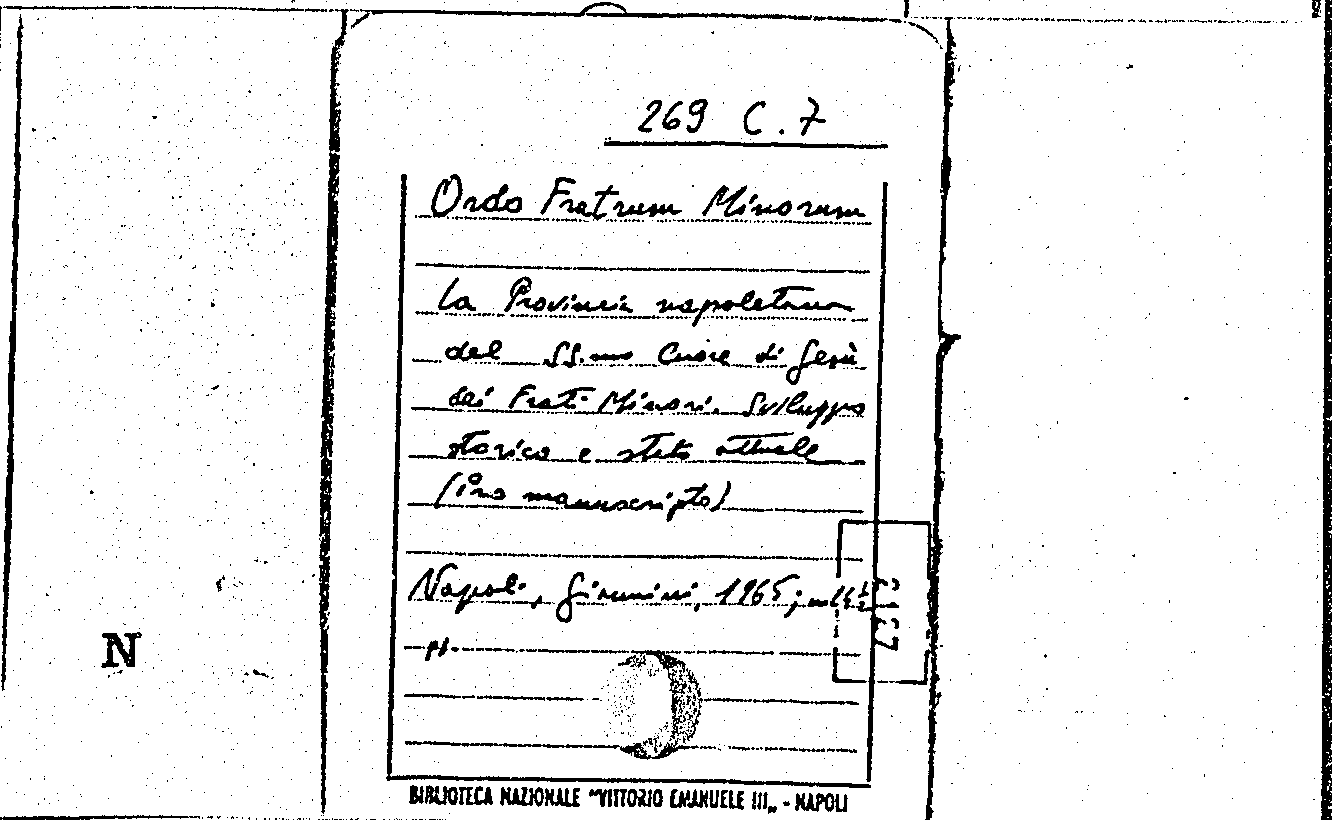 269 C.7
Ordo Fratrum Minorum
La Provincia napoletana
del SS.mo Cuore di Gesù
dei Frati Minori. Sviluppo
storico e stato attuale
(pro manuscripto)
Napoli, Giannini, 1965; in
N
p.
BIBLIOTECA NAZIONALE "VITTORIO EMANUELE III„ - NAPOLI